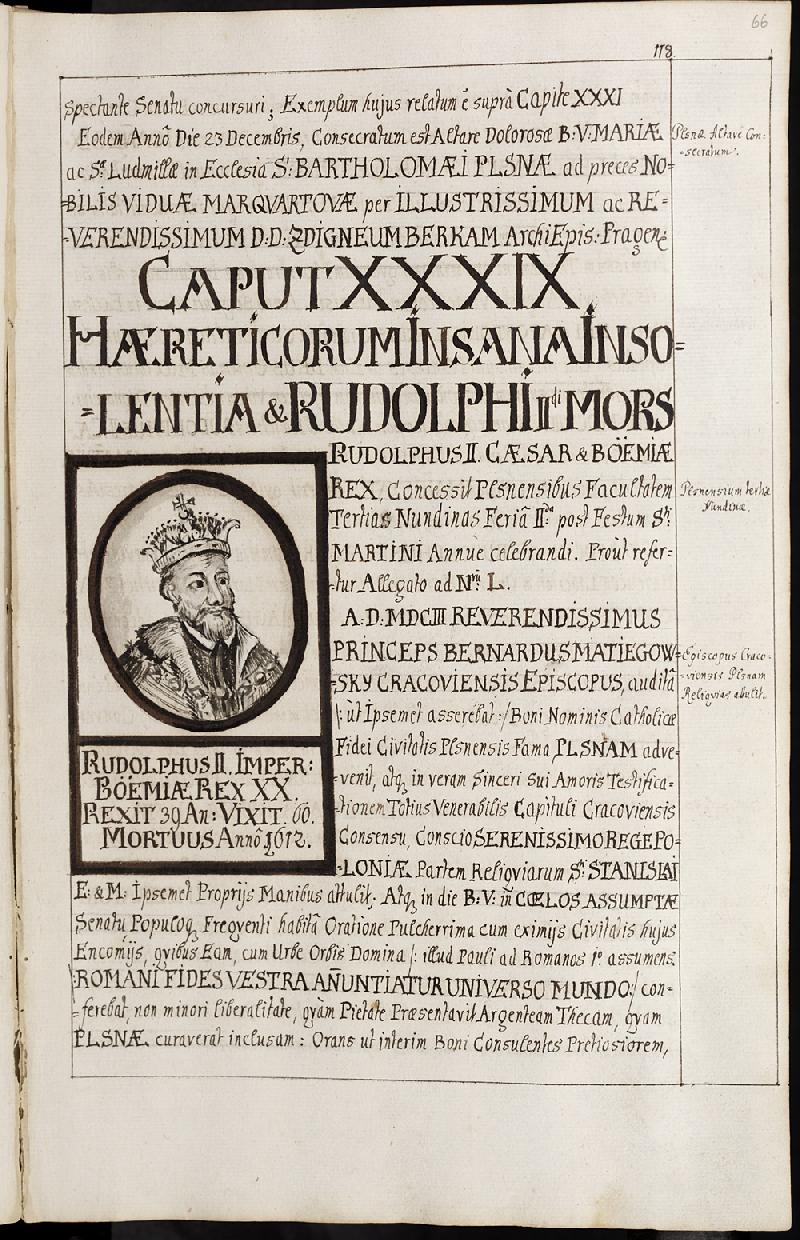 66
118
Spectante Senatu concursuri; Exemplum hujus relatum ē suprà Capite XXXI
Eodem Annô Die 23 Decembris, Consecratum est Altare Dolorosæ B:V:MARIÆ
ac Sæ Ludmillæ in Ecclesia S: BARTHOLOMÆI PLSNÆ ad preces NO=
=BILIS VIDUÆ MARQVARTOVÆ per ILLUSTRISSIMUM ac RE=
=VERENDISSIMUM D:D: ZDIGNEUM BERKAM ArchiEpis: Pragen:
Plsnæ Altare Con=
=secratum.
CAPUT XXXIX
HÆRETICORUM INSANA INSO=
=LENTIA & RUDOLPHI II di MORS
RUDOLPHUS II. CÆSAR & BÖEMIÆ
REX, Concessit Plsnensibus Facultatem
Tertias Nundinas Feriâ II post Festum Sti
MARTINI Annue celebrandi. Proùt refer=
=tur Allegato ad Nrm L.
Plsnensium tertiæ
Nundinæ.
A:D:MDCIII REVERENDISSIMUS
PRINCEPS BERNARDUS MATIEGOW=
=SKY CRACOVIENSIS EPISCOPUS, auditâ
/: ùt Ipsemet asserebat :/ Boni Nominis Catholicæ
Fidei Civitatis Plsnensis Fama, PLSNAM adve=
=venit, atq; in veram Sinceri Sui Amoris Testifica=
=tionem Totius Venerabilis Capituli Cracoviensis
Consensu, Conscio SERENISSIMO REGE PO=
=LONIÆ Partem Reliqviarum Sti STANISLAI
Episcopus Craco=
=viensis Plsnam
Reliqvias attulit.
RUDOLPHUS II. IMPER:
BÖEMIÆ REX XX.
REXIT 39 An: VIXIT. 60.
MORTUUS Annô 1612.
E: & M: Ipsemet Proprijs Manibus attulit. Atq; in die B:V: iñ CŒLOS ASSUMPTÆ
Senatu Populoq; Freqventi habitâ Oratione Pulcherrima cum eximijs Civitatis hujus
Encomijs, qvibus Eam, cum Urbe Orbis Domina /: illud Pauli ad Romanos 1º assumens
:ROMANI FIDES VESTRA AÑUNTIATUR UNIVERSO MUNDO:/ con=
=ferebat, non minori liberalitate, qvàm Pietate Præsentavit Argenteam Thecam, qvam
PLSNÆ curaverat inclusam: Orans ut interim Boni Consulentes Pretiosiorem,